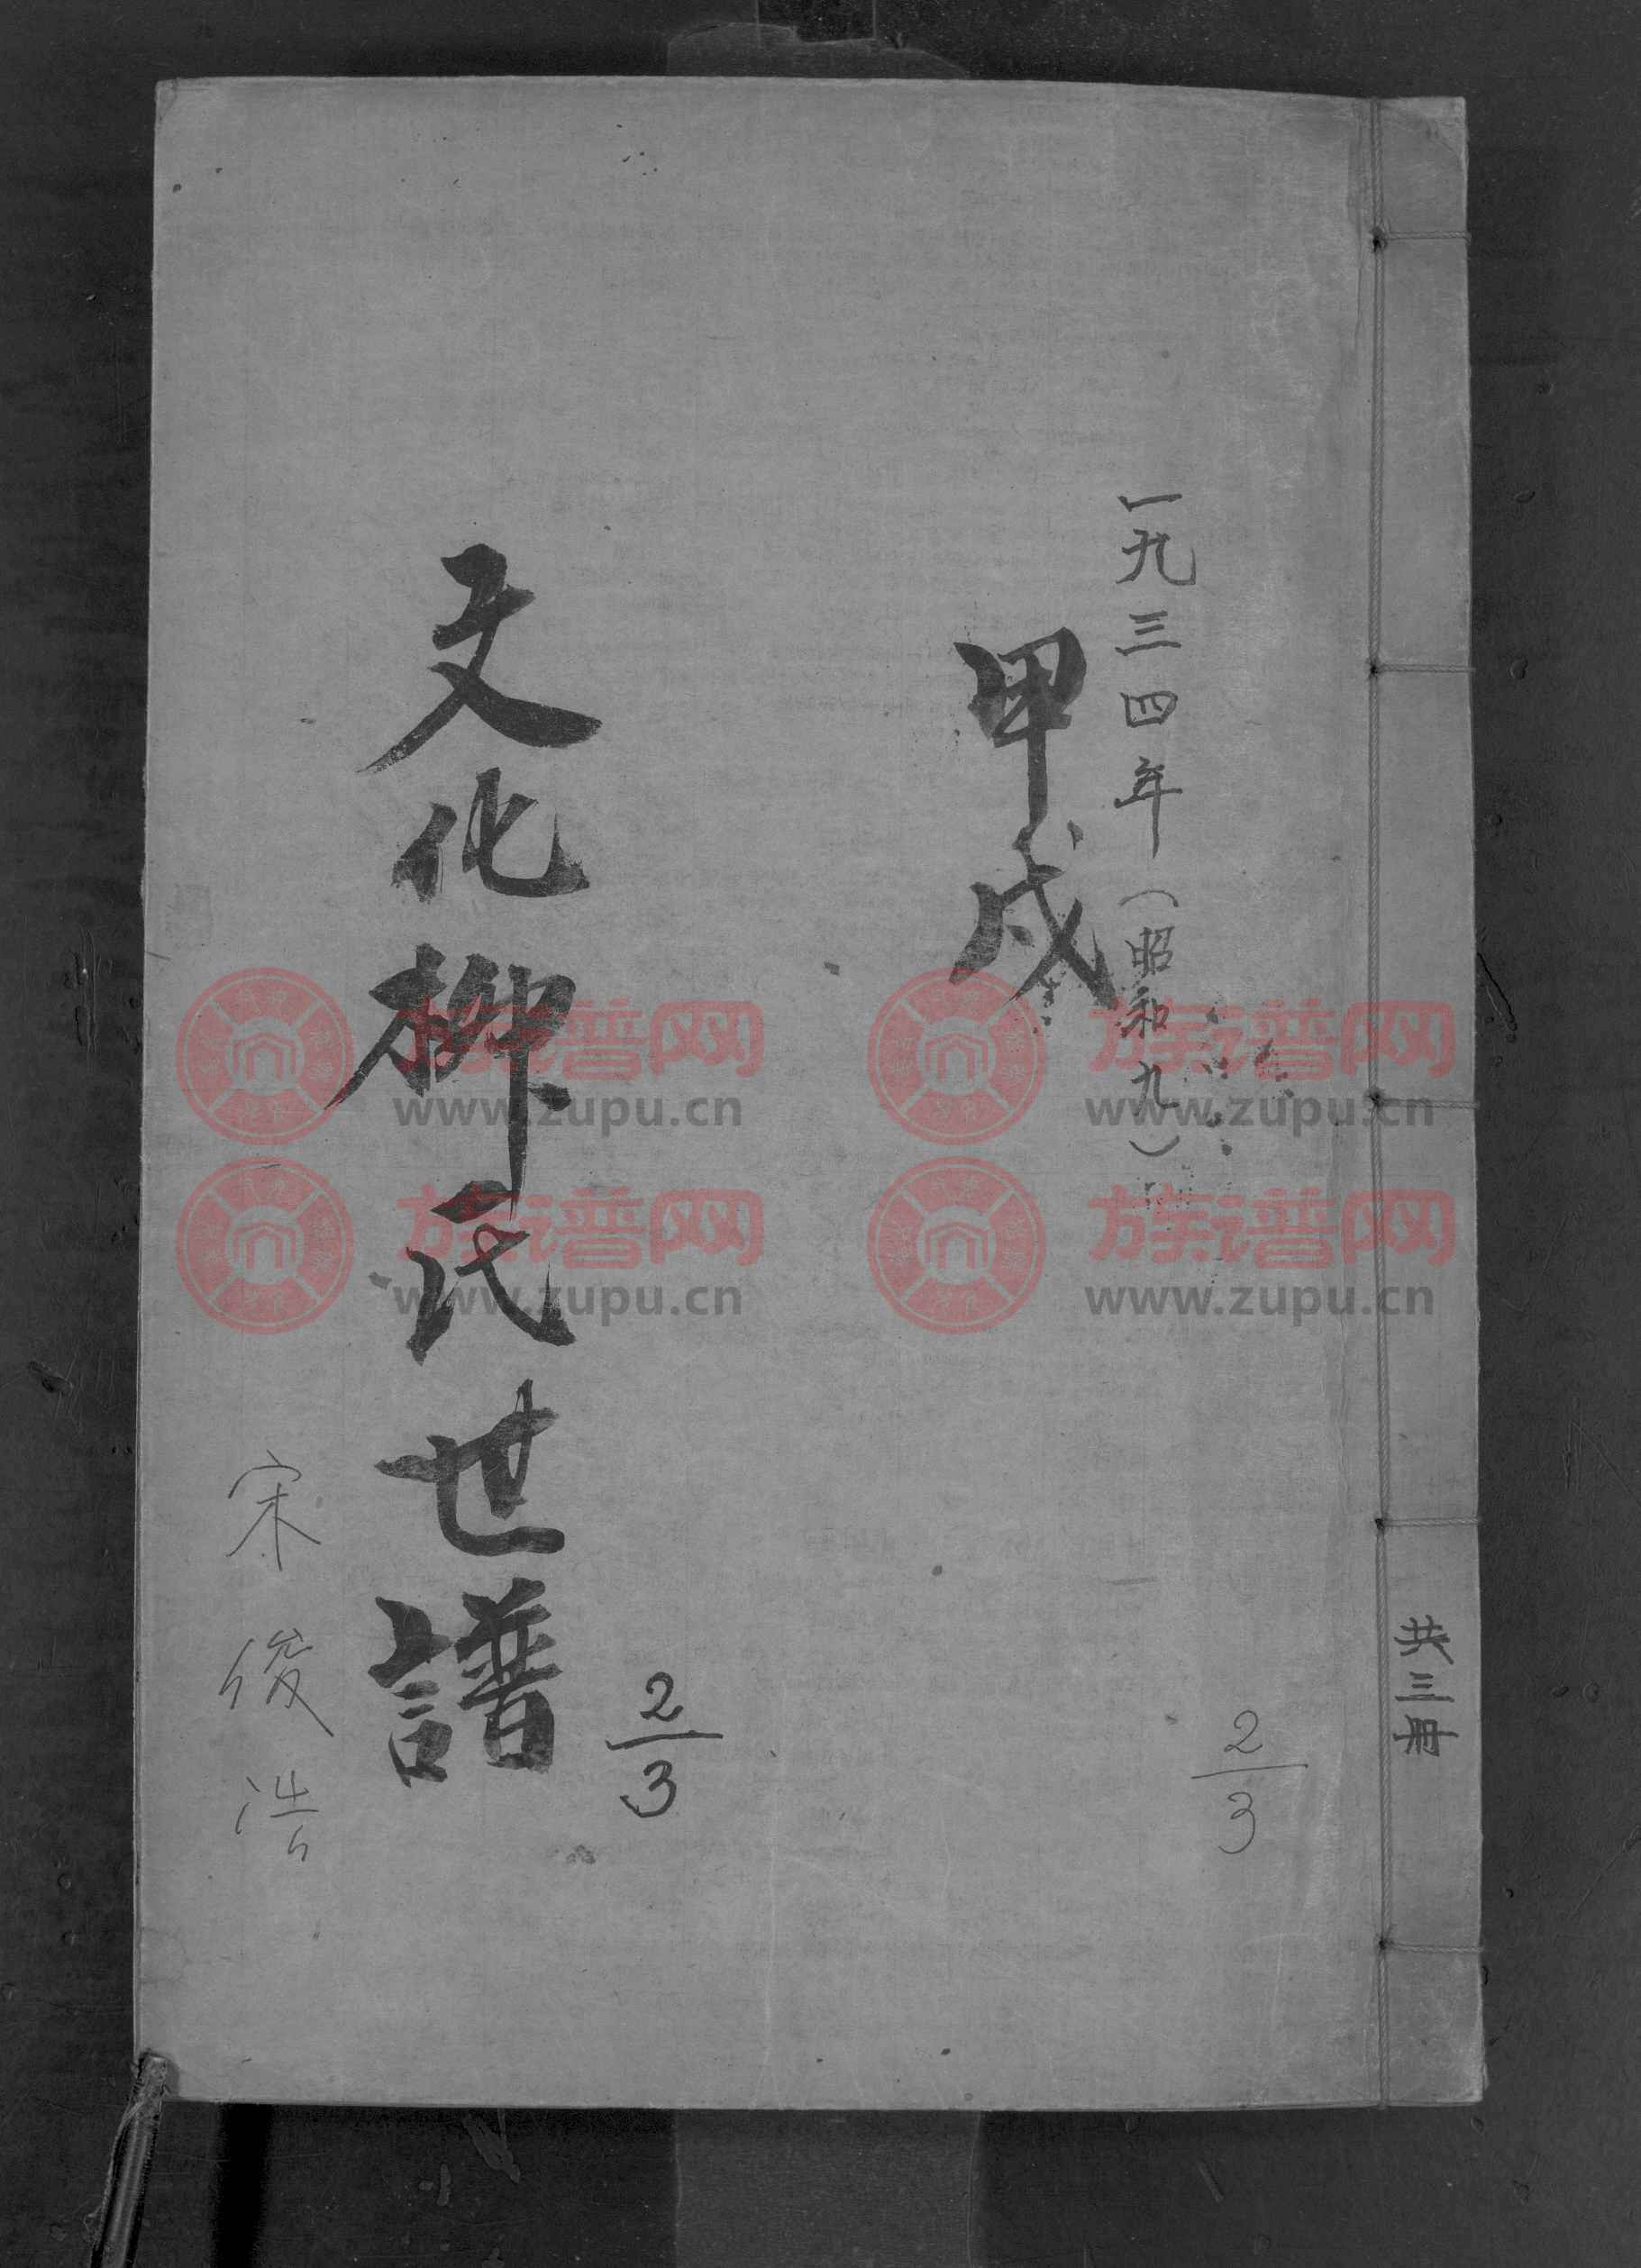 共三冊
一九三四年(昭和九)
甲戌
2/3
文化柳氏世譜
2/3
宋俊浩
族谱网
www.zupu.cn
族谱网
www.zupu.cn
族谱网
www.zupu.cn
族谱网
www.zupu.cn